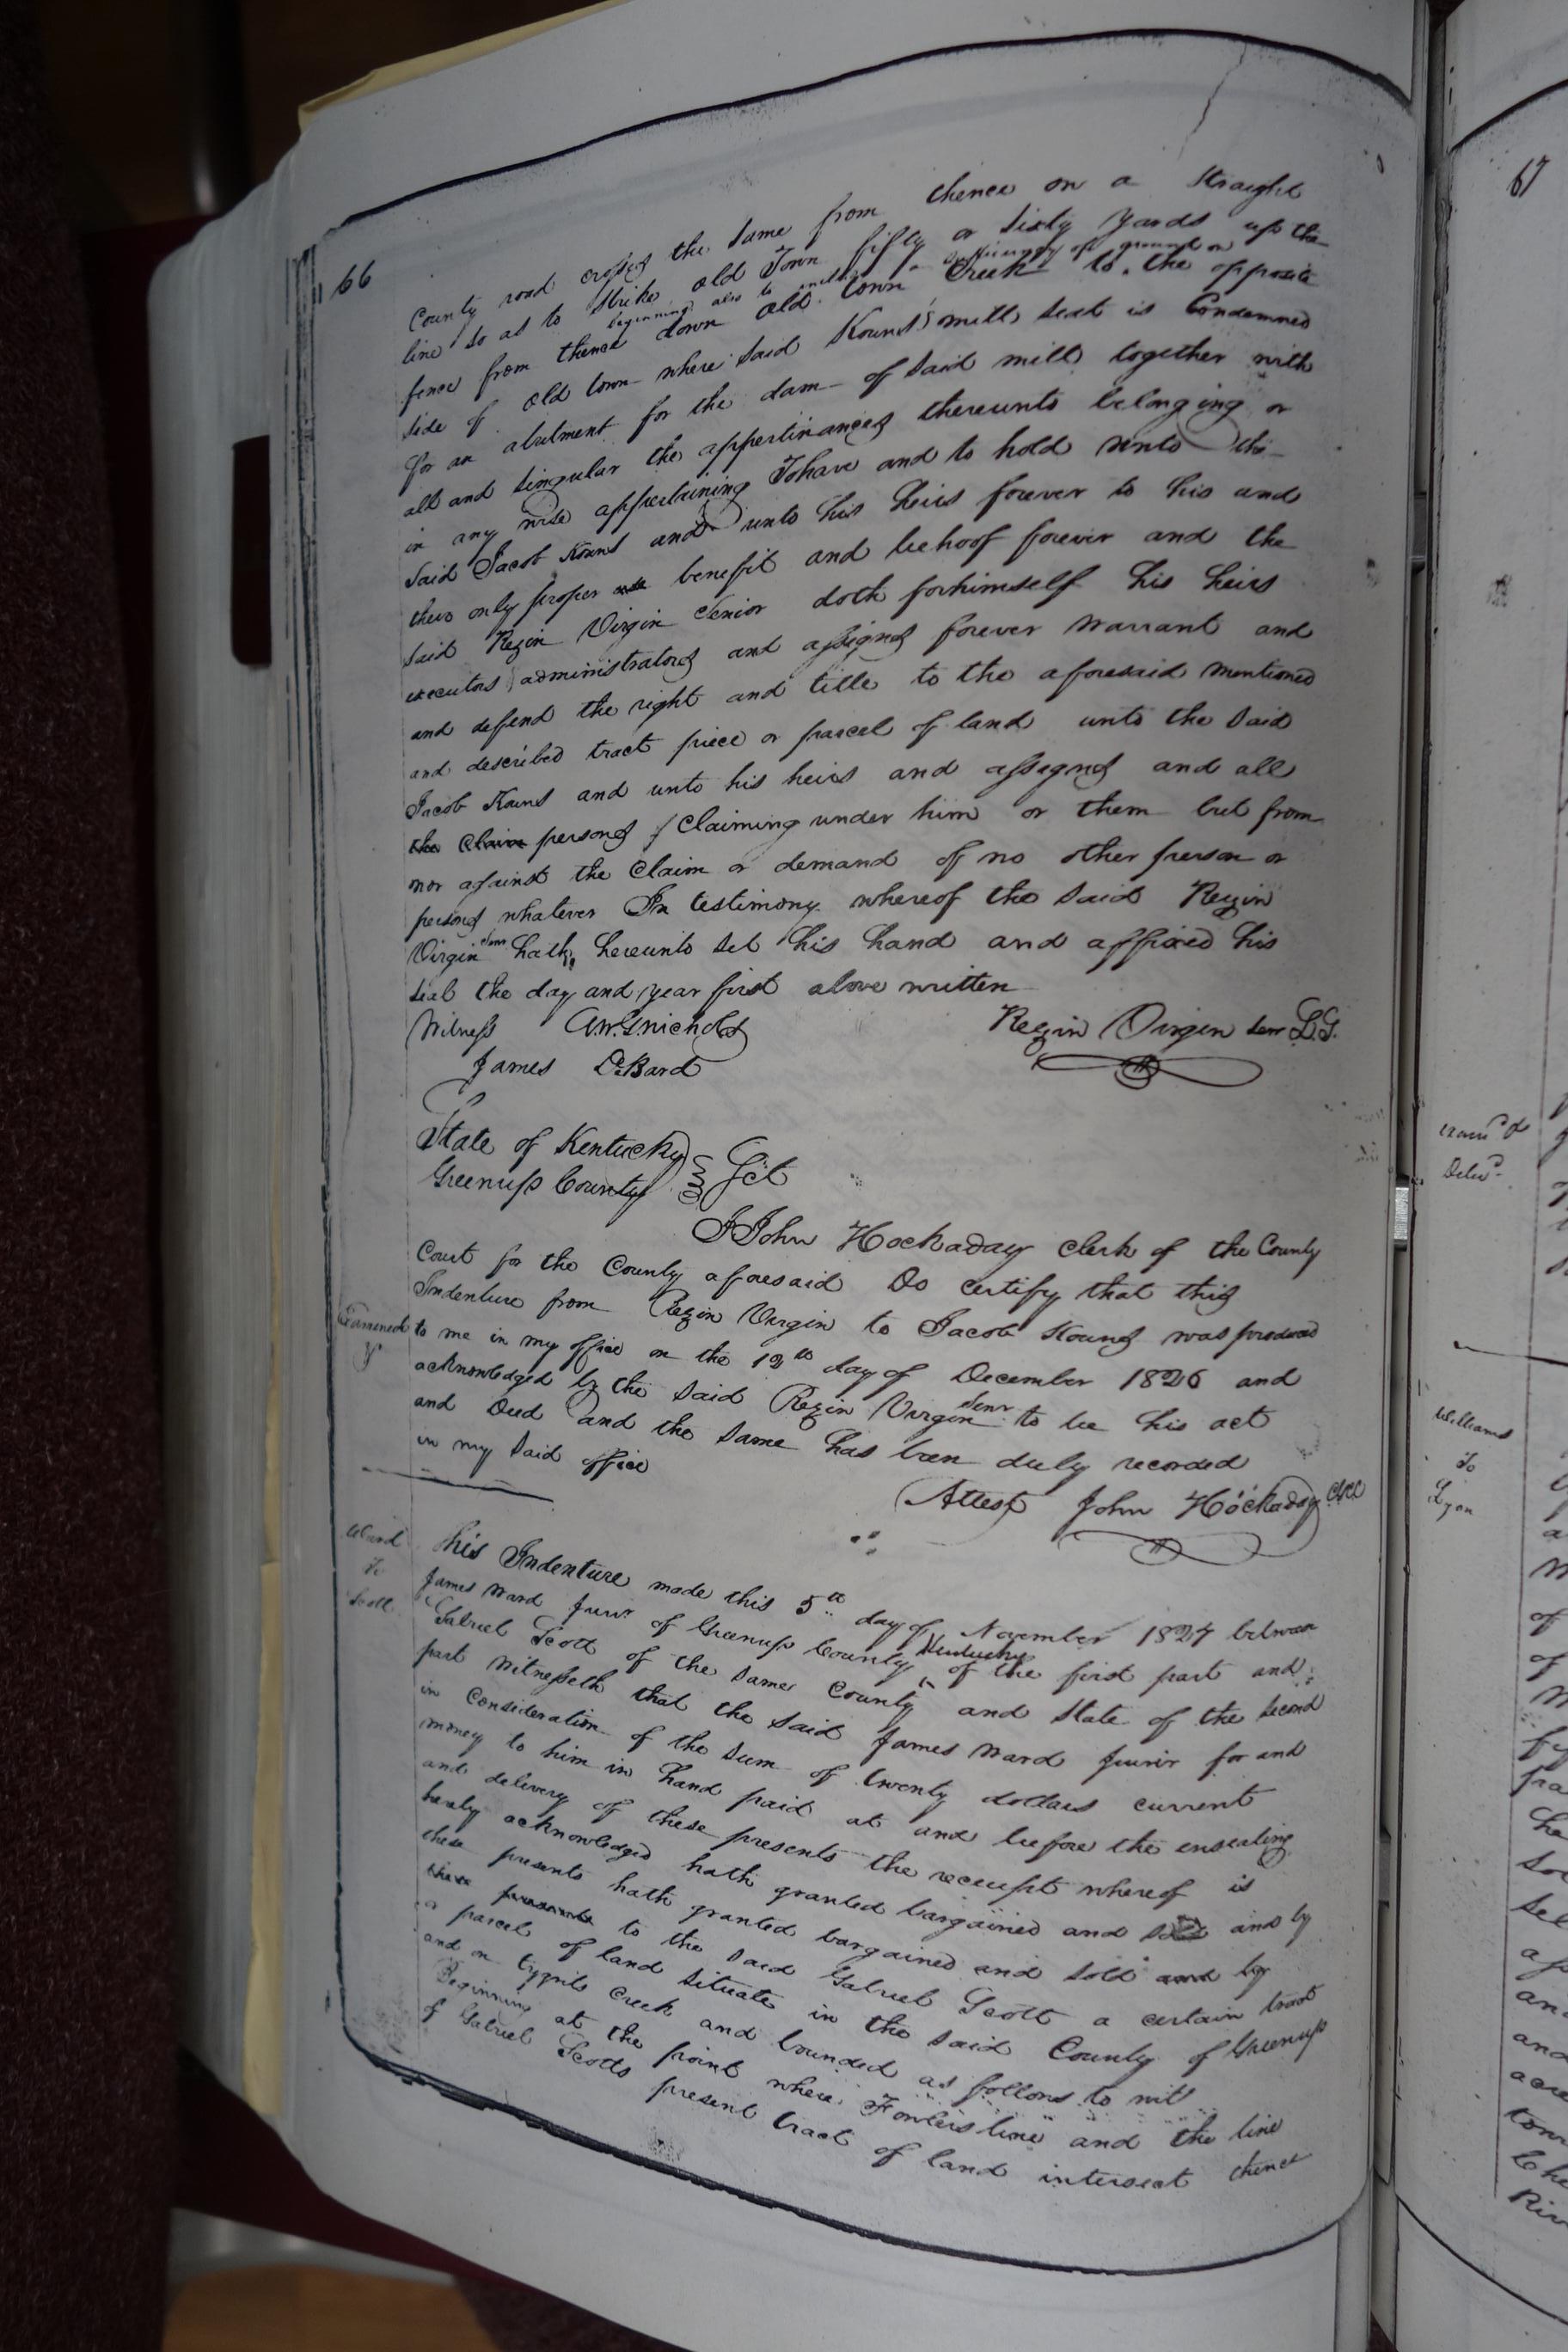 66
County road crosses the same from thence on a straight
line so as to strike old Town fifty or sixty yards up the
beginning also to sufficiency of ground on
fence from thence down old town Creek to the opposite
side of old town where said Kouns' mill seat is Condemned
for an abutment for the dam of said mill together with
all and singular the appertinances thereunto belonging or
in any wise appertaining To have and to hold unto the
said Jacob Kouns and unto his heirs forever to his and
their only proper use benefit and behoof forever and the
said Rezin Virgin Senior doth for himself his heirs
executors administrators and assigns forever warrant and
and defend the right and title to the aforesaid mentioned
and described tract piece or parcel of land unto the said
Jacob Kouns and unto his heirs and assigns and all
the claim persons claiming under him or them but from
nor against the claim or demand of no other person or
persons whatever In testimony whereof the said Rezin
Virgin Senr hath hereunto set his hand and affixed his
seal the day and year first above written
Witness
Rezin Virgin Senr L.S.
James DeBard
State of Kentucky
Greenup County } Sct
I John Hockaday clerk of the County
Court for the County aforesaid Do certify that this
Indenture from Rezin Virgin to Jacob Kouns was produced
Examined
to me in my office on the 12th day of December 1826 and
acknowledged by the said Rezin Virgin Senr to be his act
and Deed and the same has been duly recorded
in my said office
Attest John Hockaday Clk
Ward
To
Scott
This Indenture made this 5th day of November 1827 between
James Ward Junr of Greenup County Kentucky of the first part and
Gabriel Scott of the same County and State of the second
part Witnesseth that the said James Ward Junir for and
in consideration of the sum of twenty dollars current
money to him in hand paid at and before the ensealing
and delivery of these presents the receipt whereof is
hereby acknowledged hath granted bargained and sold and by
these presents hath granted bargained and sold and by
these presents to the said Gabriel Scott a certain tract
or parcel of land situate in the said County of Greenup
and on tygits Creek and bounded as follows to wit
Beginning at the point where Fowlers line and the line
of Gabriel Scotts present tract of land intersect thence
67
Exam'd &
Deliv'd
Williams
To
Lyon